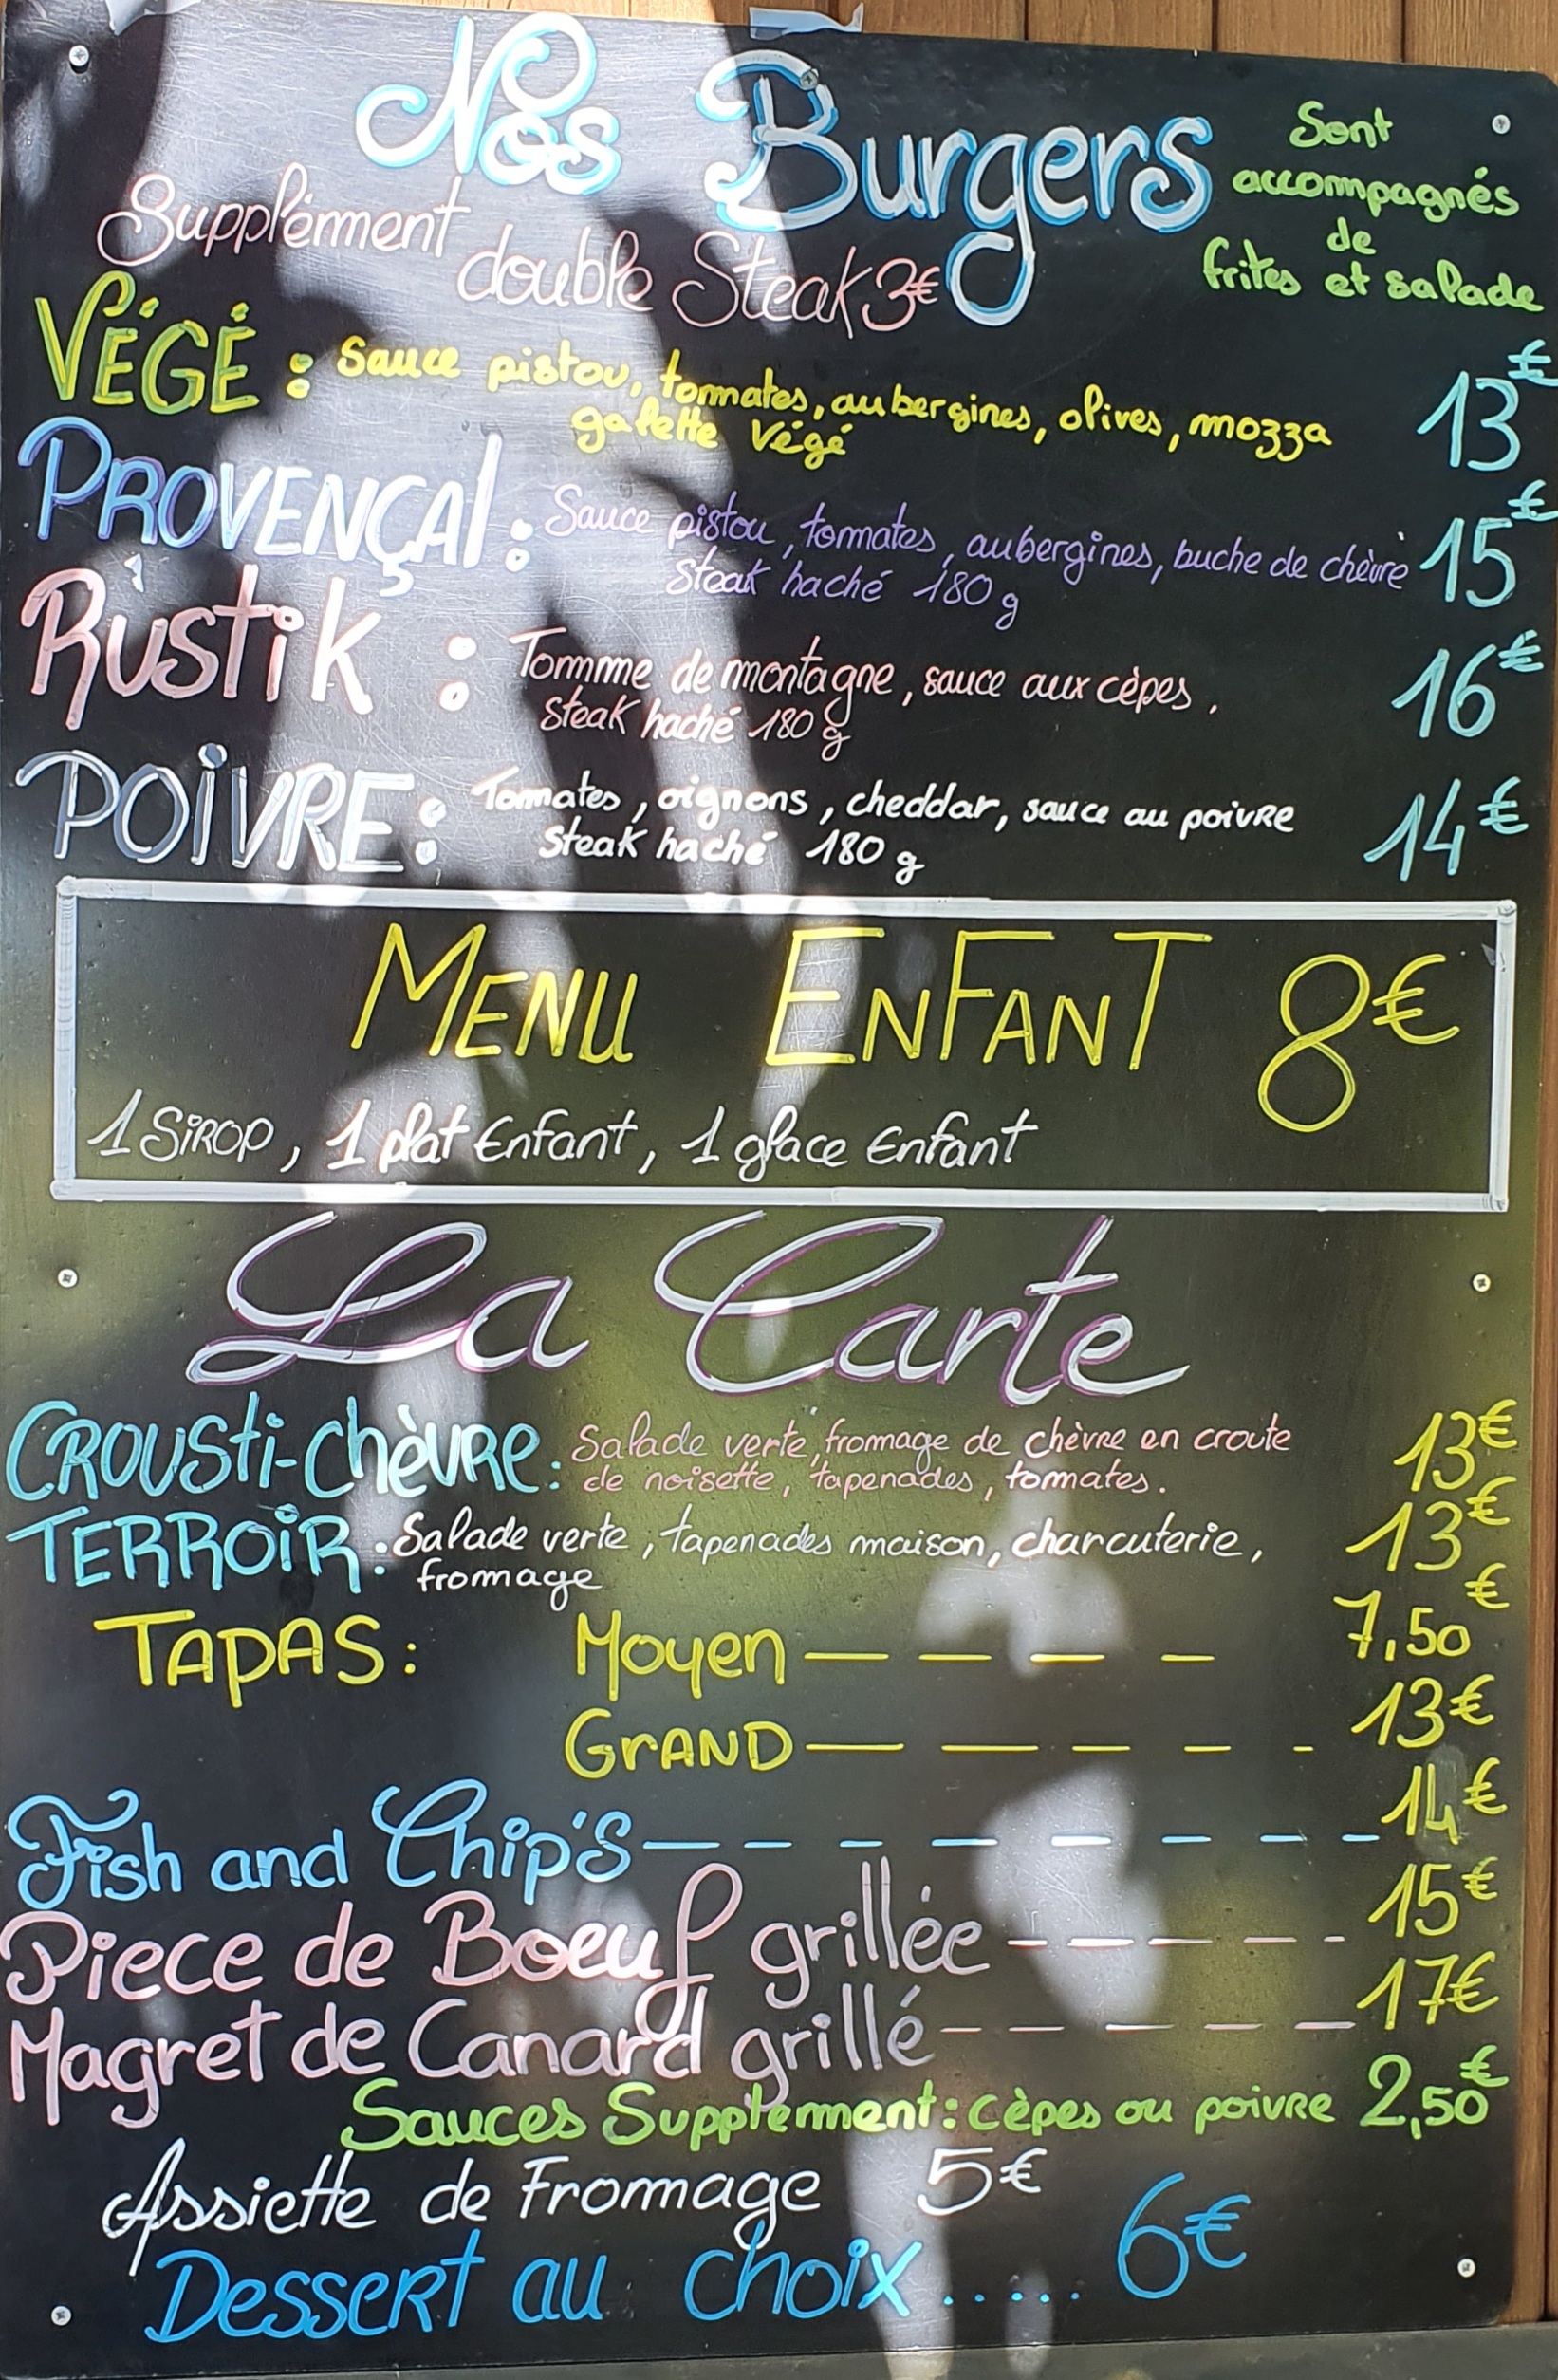 Nos Burgers
Sont
accompagnés
de
frites et salade
Supplément
double Steak 3€
VÉGÉ : Sauce pistou, tomates, aubergines, olives, mozza 13€
galette Végé
PROVENÇAL : Sauce pistou, tomates, aubergines, buche de chèvre 15€
Steak haché 180 g
RUSTIK : Tomme de montagne, sauce aux cèpes. 16€
Steak haché 180 g
POIVRE : Tomates, oignons, cheddar, sauce au poivre 14€
Steak haché 180 g
MENU ENFANT 8€
1 SIROP, 1 plat Enfant, 1 glace Enfant
La Carte
CROUSTI-CHÈVRE : Salade verte, fromage de chèvre en croute 13€
de noisette, tapenades, tomates.
TERROIR : Salade verte, tapenades maison, charcuterie, 13€
fromage
TAPAS : Moyen 7,50€
GRAND 13€
Fish and Chip's 14€
Piece de Boeuf grillée 15€
Magret de Canard grillé 17€
Sauces Supplément : cèpes ou poivre 2,50€
Assiette de Fromage 5€
Dessert au choix ..... 6€